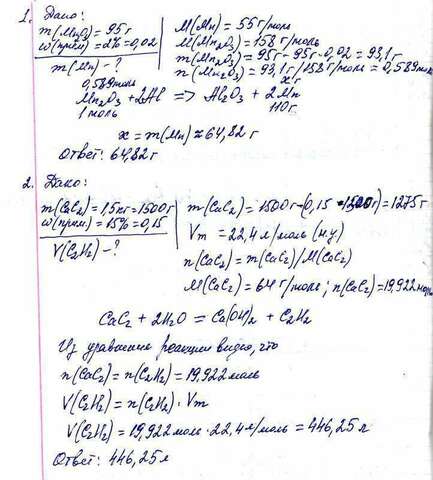 1. Дано:
m(Mn2O3) = 95г
w(прим) = 2% = 0,02
m(Mn) - ?
M(Mn) = 55 г/моль
M(Mn2O3) = 158 г/моль
m(Mn2O3) = 95г - 95г · 0,02 = 93,1г
n(Mn2O3) = 93,1г / 158 г/моль = 0,589моль
0,589моль x г
Mn2O3 + 2Al => Al2O3 + 2Mn
1 моль 110г
x = m(Mn) ≈ 64,82 г
Ответ: 64,82г
2. Дано:
m(CaC2) = 1,5кг = 1500г
w(прим) = 15% = 0,15
V(C2H2) - ?
m(CaC2) = 1500г - (0,15 · 1500г) = 1275г
Vm = 22,4 л/моль (н.у)
n(CaC2) = m(CaC2)/M(CaC2)
M(CaC2) = 64 г/моль; n(CaC2) = 19,922моль
CaC2 + 2H2O = Ca(OH)2 + C2H2
Из уравнения реакции видно, что
n(CaC2) = n(C2H2) = 19,922моль
V(C2H2) = n(C2H2) · Vm
V(C2H2) = 19,922моль · 22,4 л/моль = 446,25л
Ответ: 446,25л